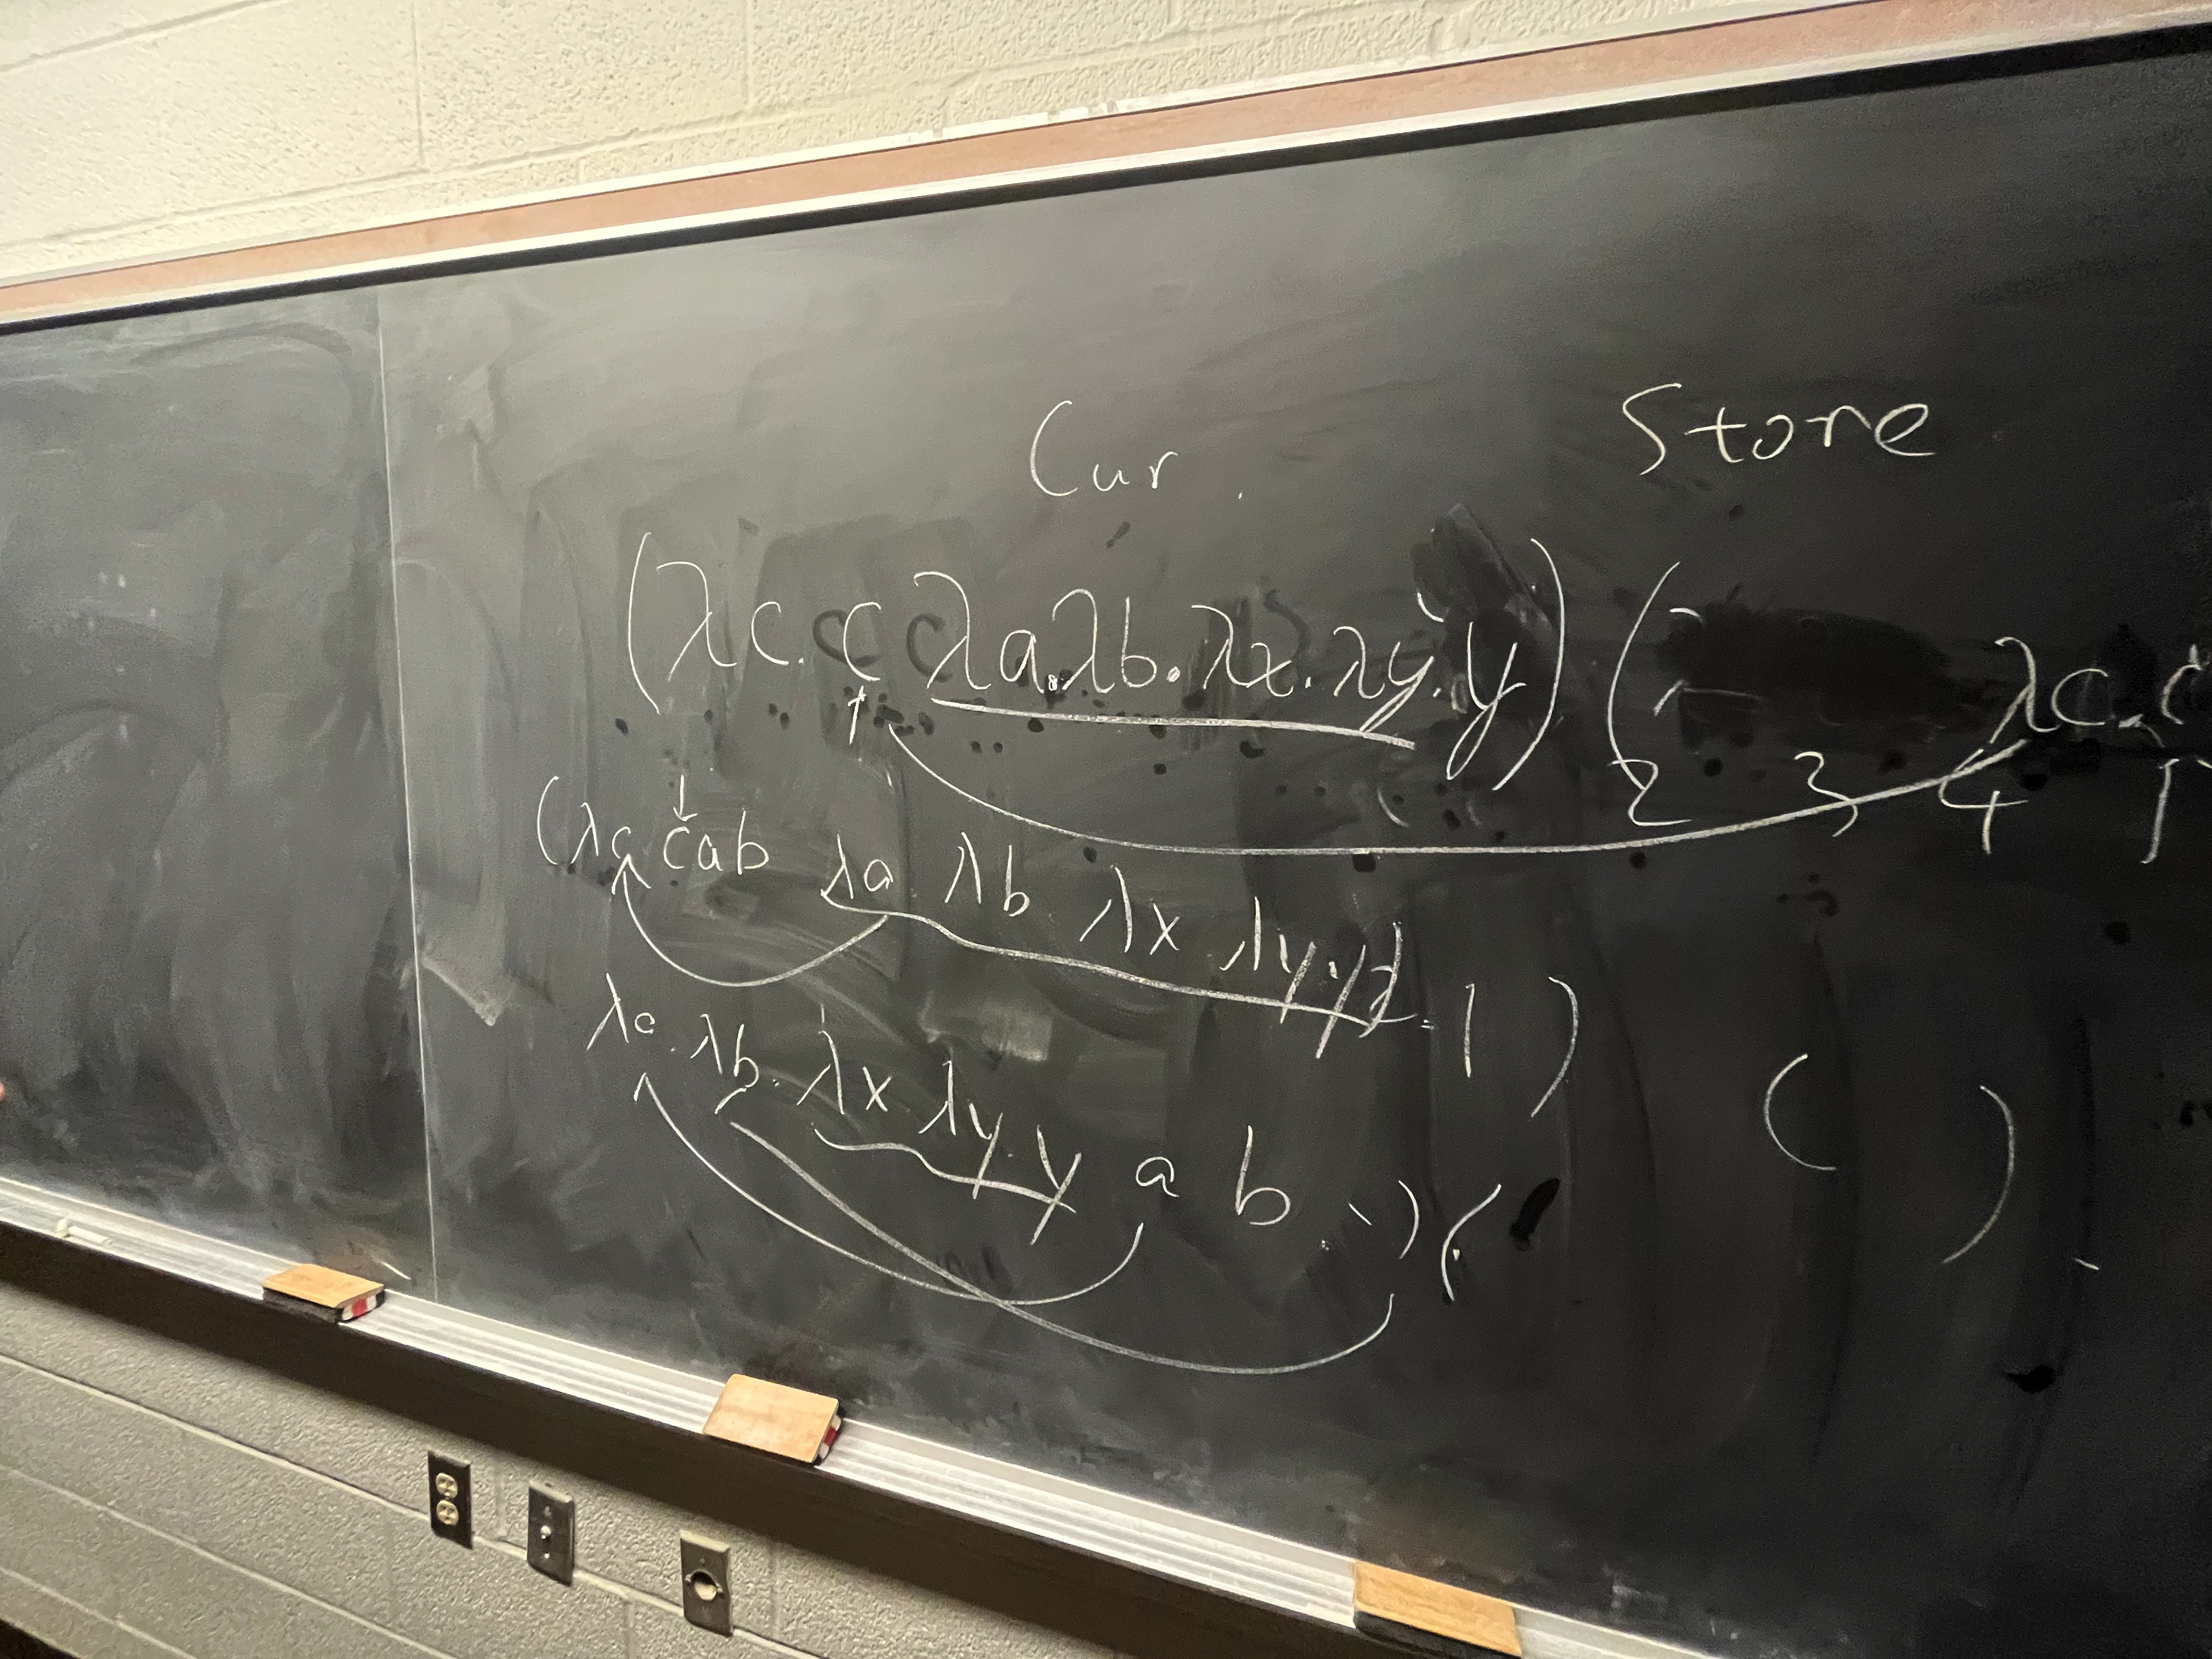 Cur. Store
(λc. c λa.λb.λx.λy.y) ( λc.c
2 3 4
(λc cab λa λb λx λy.y
λa.λb.λx λy y a b